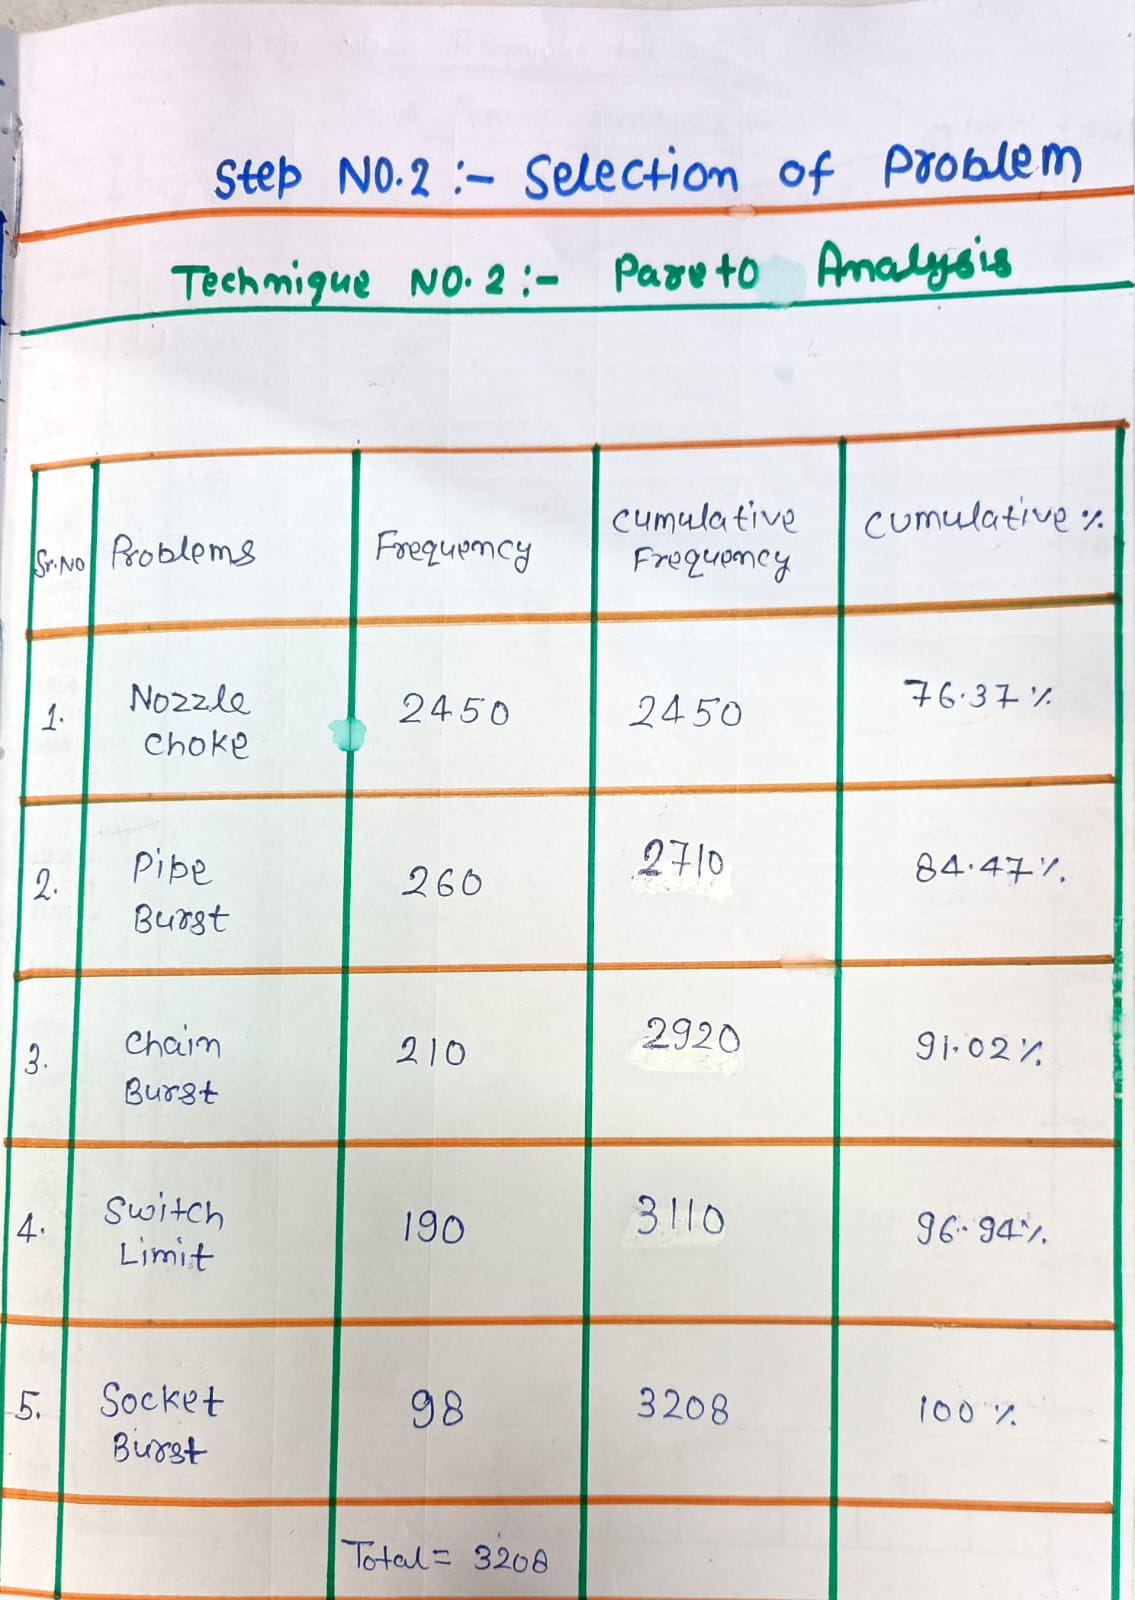 Step NO.2 :- Selection of Problem
Technique NO.2 :- Pareto Analysis
Sr.No Problems Frequency Cumulative Frequency Cumulative %
1. Nozzle Choke 2450 2450 76.37 %
2. Pipe Burst 260 2710 84.47 %
3. Chain Burst 210 2920 91.02 %
4. Switch Limit 190 3110 96.94 %
5. Socket Burst 98 3208 100 %
Total = 3208